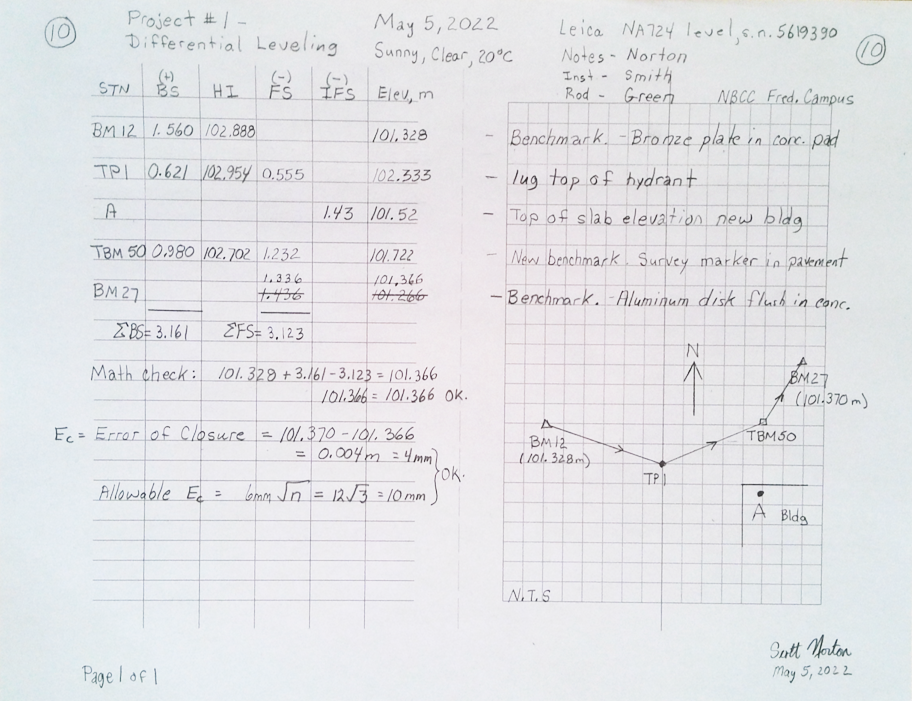 10
Project #1 -
Differential Leveling
May 5, 2022
Sunny, Clear, 20°C
Leica NA724 level, s.n. 5619390
Notes - Norton
Inst - Smith
Rod - Green NBCC Fred. Campus
10
STN (+) BS HI (-) FS (-) IFS Elev, m
BM12 1.560 102.888 101.328 - Benchmark. - Bronze plate in conc. pad
TP1 0.621 102.954 0.555 102.333 - lug top of hydrant
A 1.43 101.52 - Top of slab elevation new bldg
TBM 50 0.980 102.702 1.232 101.722 - New benchmark. Survey marker in pavement
1.336 101.366
BM27 1.436 101.266 - Benchmark. - Aluminum disk flush in conc.
ΣBS= 3.161 ΣFS= 3.123
Math check: 101.328 + 3.161 - 3.123 = 101.366
101.366 = 101.366 OK.
Ec = Error of Closure = 101.370 - 101.366
= 0.004m = 4mm
Allowable Ec = 6mm √n = 12√3 = 10mm
OK.
N
BM27
(101.370 m)
BM12
(101.328m)
TBM50
TP1
A Bldg
N.T.S
Scott Norton
May 5, 2022
Page 1 of 1